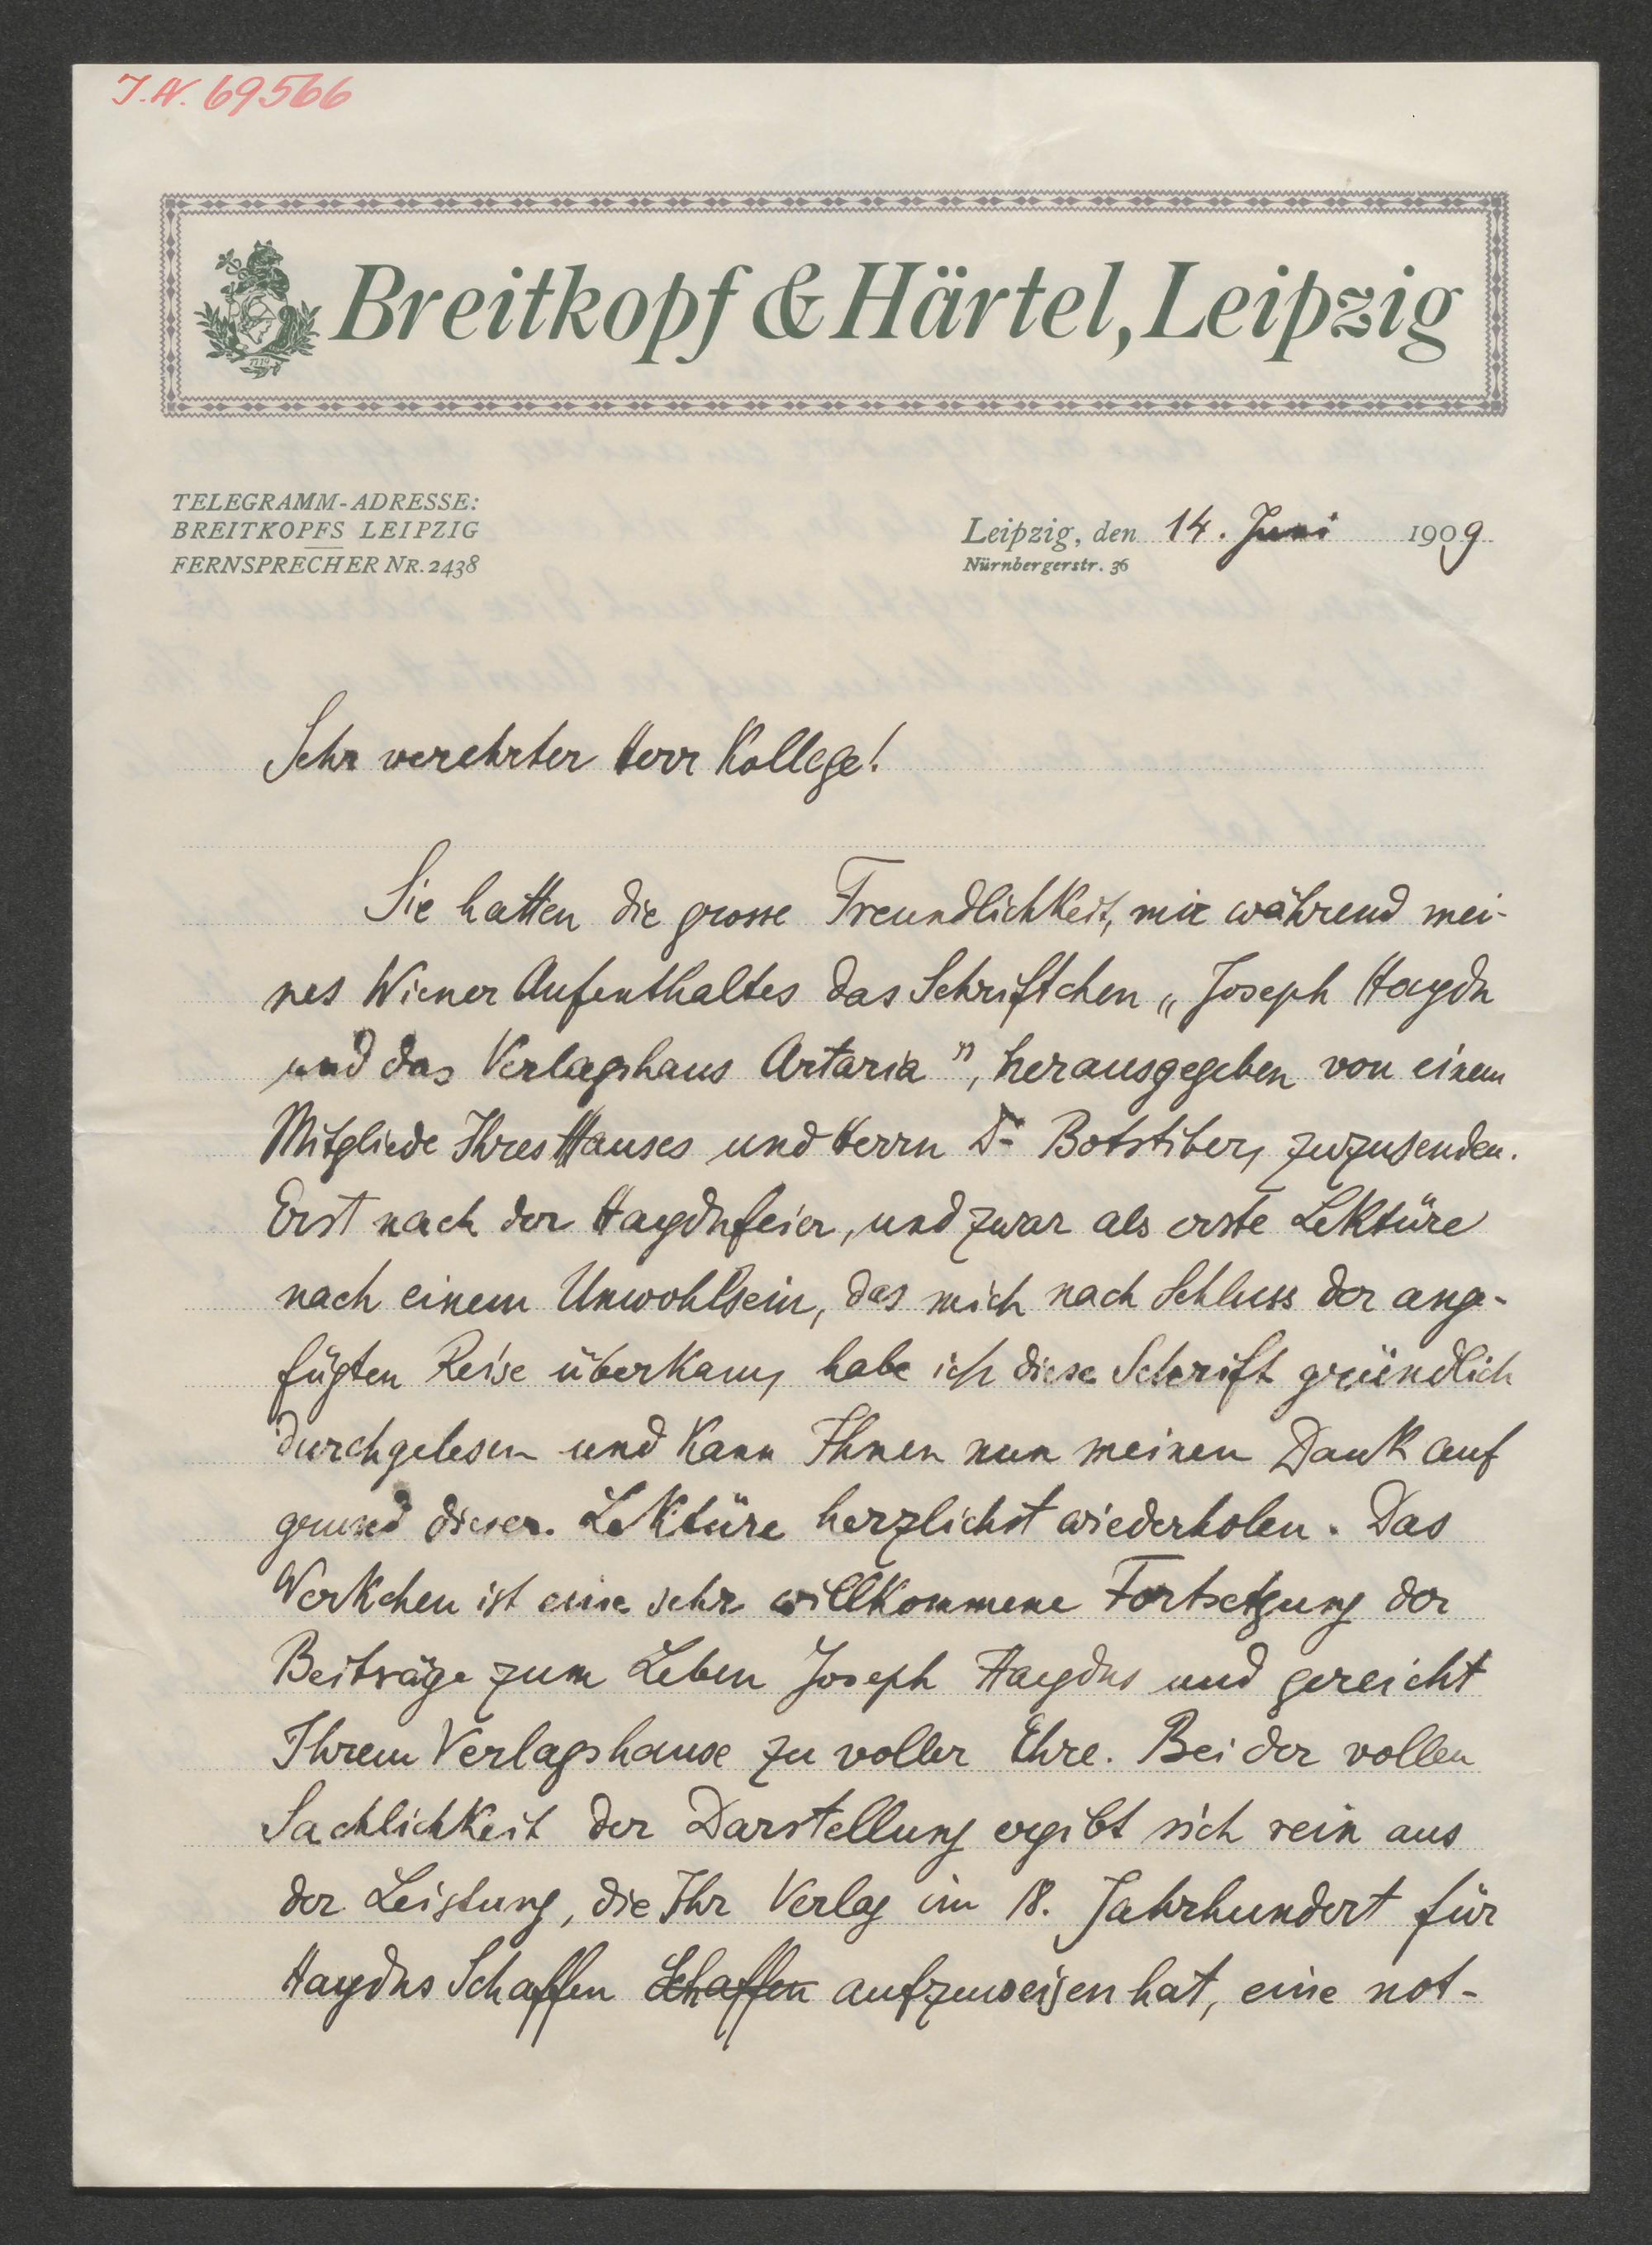 J.N. 69566
Breitkopf & Härtel, Leipzig
1719
TELEGRAMM-ADRESSE:
BREITKOPFS LEIPZIG
FERNSPRECHER NR. 2438
Leipzig, den 14. Juni 1909
Nürnbergerstr. 36
Sehr verehrter Herr Kollege!
Sie hatten die grosse Freundlichkeit, mir während mei-
nes Wiener Aufenthaltes das Schriftchen „Joseph Haydn
und das Verlagshaus Artaria", herausgegeben von einem
Mitgliede Ihres Hauses und Herrn Dr Botstiber, zuzusenden.
Erst nach der Haydnfeier, und zwar als erste Lektüre
nach einem Unwohlsein, das mich nach Schluss der ange-
fügten Reise überkam, habe ich diese Schrift gründlich
durchgelesen und kann Ihnen nun meinen Dank auf
grund dieser Lektüre herzlichst wiederholen. Das
Werkchen ist eine sehr willkommene Fortsetzung der
Beiträge zum Leben Joseph Haydns und gereicht
Ihrem Verlagshause zu voller Ehre. Bei der vollen
Sachlichkeit der Darstellung ergibt sich rein aus
der Leistung, die Ihr Verlag im 18. Jahrhundert für
Haydns Schaffen Schaffen aufzuweisen hat, eine not-